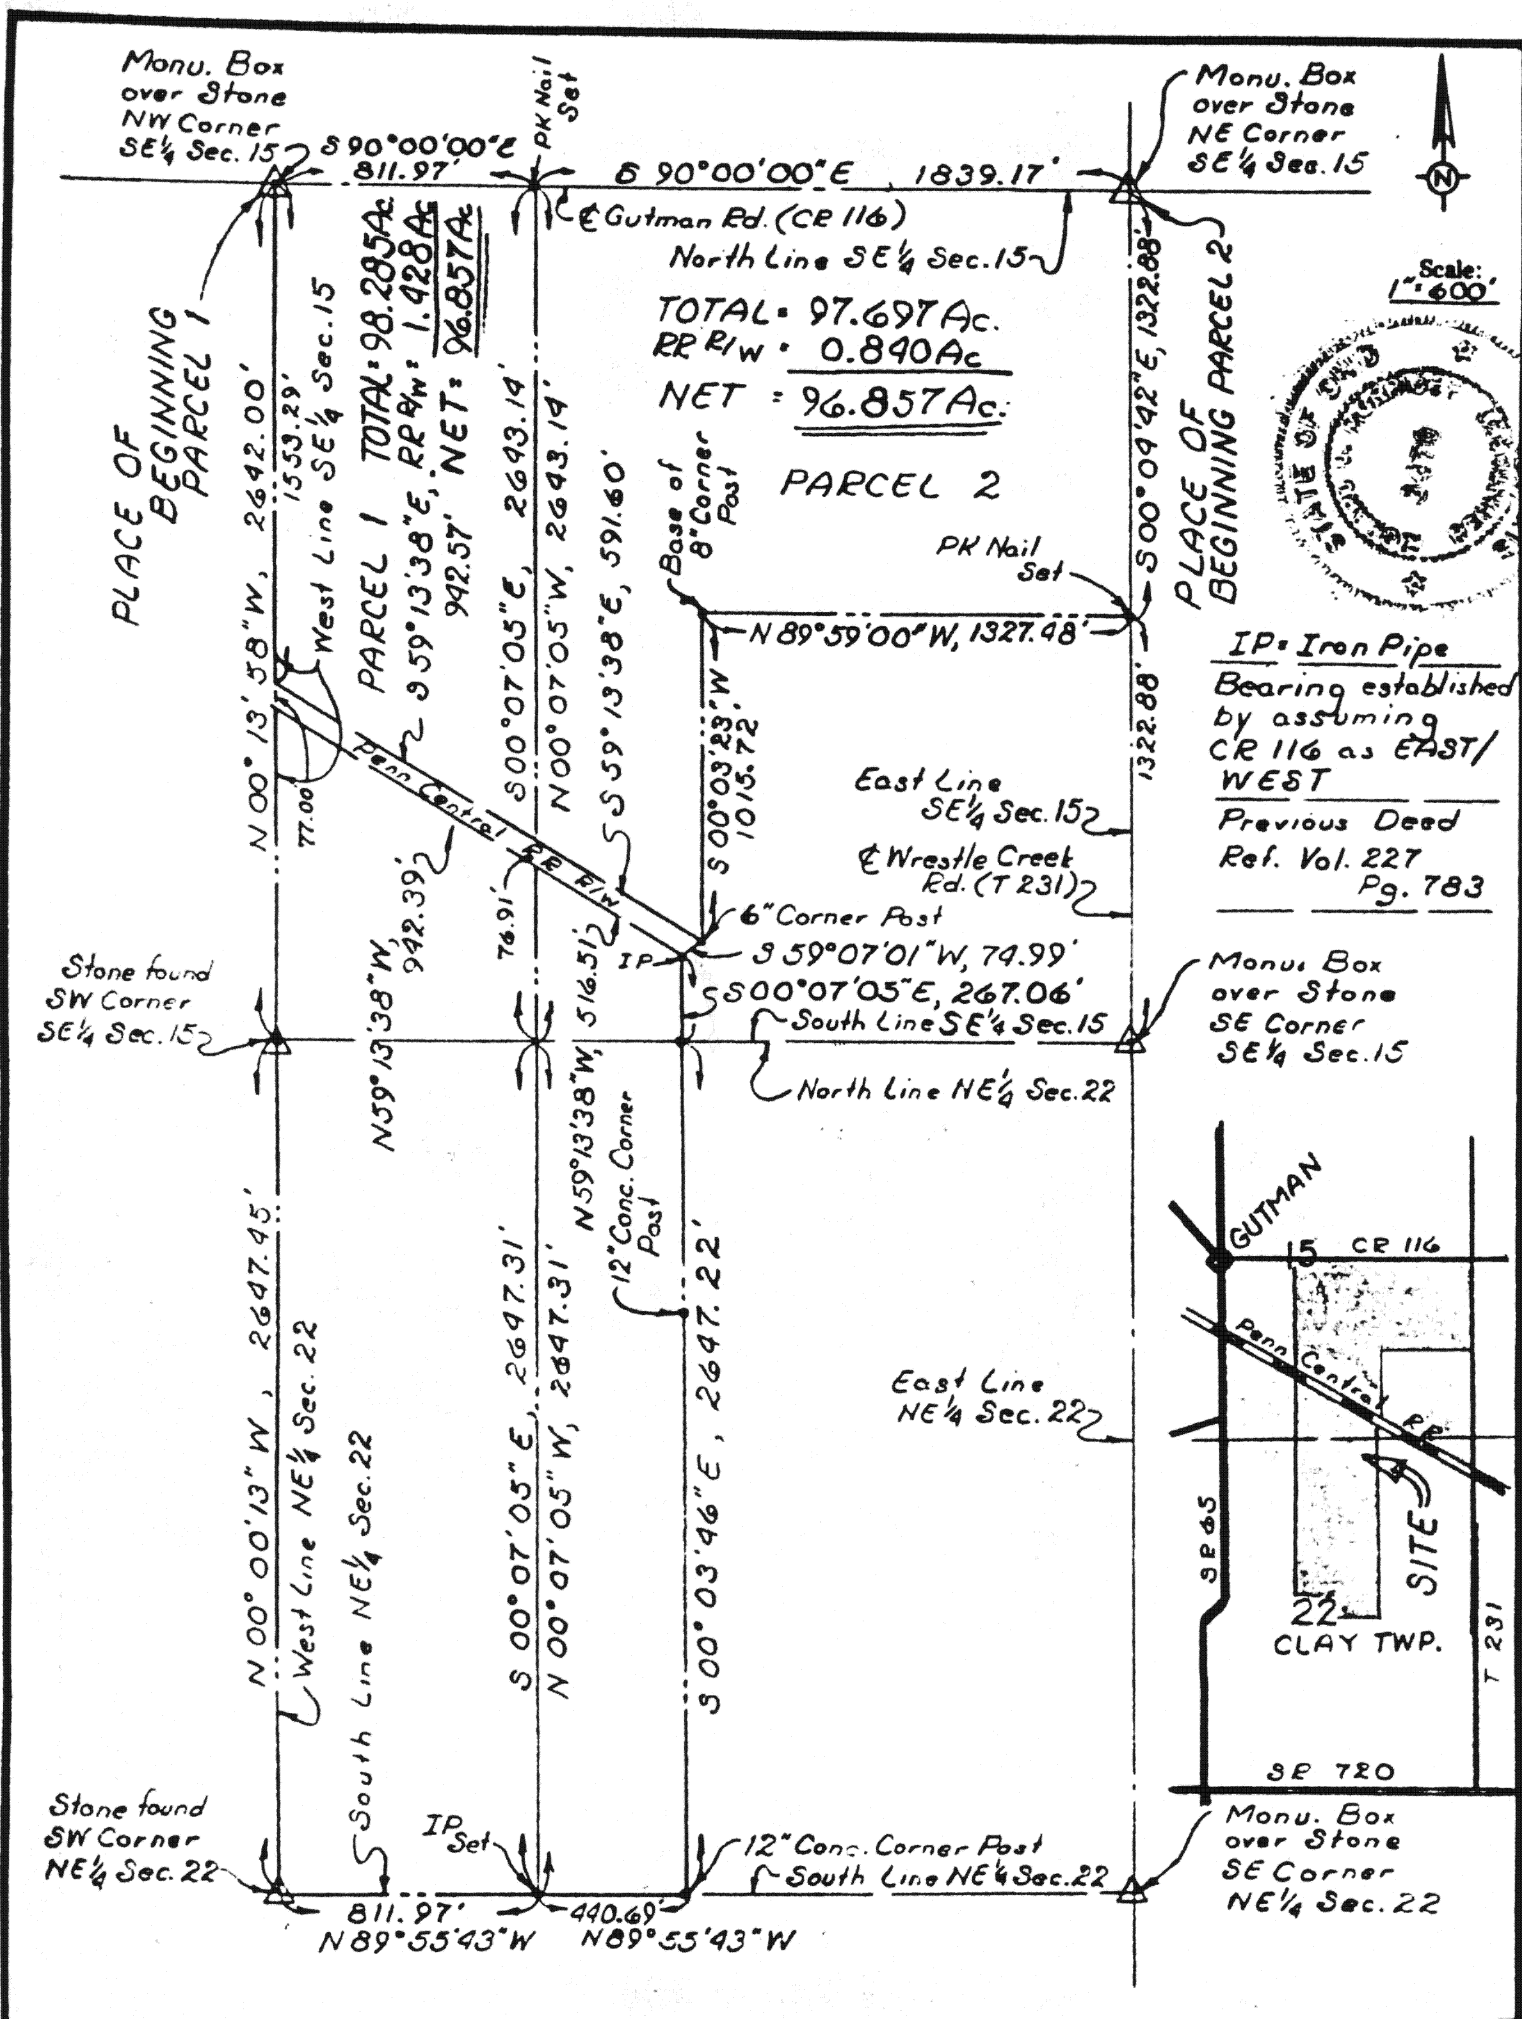 Monu. Box
over Stone
NW Corner
SE¼ Sec. 15
S 90°00'00"E
811.97'
PK Nail
Set
S 90°00'00"E 1839.17'
Monu. Box
over Stone
NE Corner
SE¼ Sec. 15
N
℄ Gutman Rd. (CR 116)
North Line SE¼ Sec. 15
TOTAL = 97.697 Ac.
RR R/W = 0.840 Ac
NET = 96.857 Ac.
PARCEL 2
Scale:
1" = 600'
PLACE OF
BEGINNING
PARCEL 1
N 00° 13' 58" W, 2642.00'
1553.29'
West Line SE¼ Sec. 15
PARCEL 1 TOTAL = 98.285 Ac
RR R/W = 1.428 Ac
NET = 96.857 Ac
S 59° 13' 38" E,
942.57'
S 00° 07' 05" E, 2643.14'
N 00° 07' 05" W, 2643.14'
S 59° 13' 38" E, 591.60'
Base of
8" Corner
Post
PK Nail
Set
S 00° 04' 42" E, 1322.88'
PLACE OF
BEGINNING PARCEL 2
STATE OF OHIO
N 89° 59' 00" W, 1327.48'
1322.88'
S 00° 03' 23" W
1015.72'
IP = Iron Pipe
Bearing established
by assuming
CR 116 as EAST/
WEST
Previous Deed
Ref. Vol. 227
Pg. 783
East Line
SE¼ Sec. 15
℄ Wrestle Creek
Rd. (T 231)
Penn Central RR R/W
77.00'
76.91'
N 59° 13' 38" W,
942.39'
N 59° 13' 38" W, 516.51'
6" Corner Post
IP
S 59° 07' 01" W, 74.99'
S 00° 07' 05" E, 267.06'
South Line SE¼ Sec. 15
North Line NE¼ Sec. 22
Stone found
SW Corner
SE¼ Sec. 15
Monu. Box
over Stone
SE Corner
SE¼ Sec. 15
12" Conc. Corner
Post
N 00° 00' 13" W, 2647.45'
West Line NE¼ Sec. 22
South Line NE¼ Sec. 22
S 00° 07' 05" E, 2647.31'
N 00° 07' 05" W, 2647.31'
S 00° 03' 46" E, 2647.22'
East Line
NE¼ Sec. 22
GUTMAN
15
CR 116
Penn Central RR
SR 65
SITE
22
CLAY TWP.
T 231
SR 720
Stone found
SW Corner
NE¼ Sec. 22
IP
Set
12" Conc. Corner Post
South Line NE¼ Sec. 22
Monu. Box
over Stone
SE Corner
NE¼ Sec. 22
811.97'
N 89° 55' 43" W
440.69'
N 89° 55' 43" W